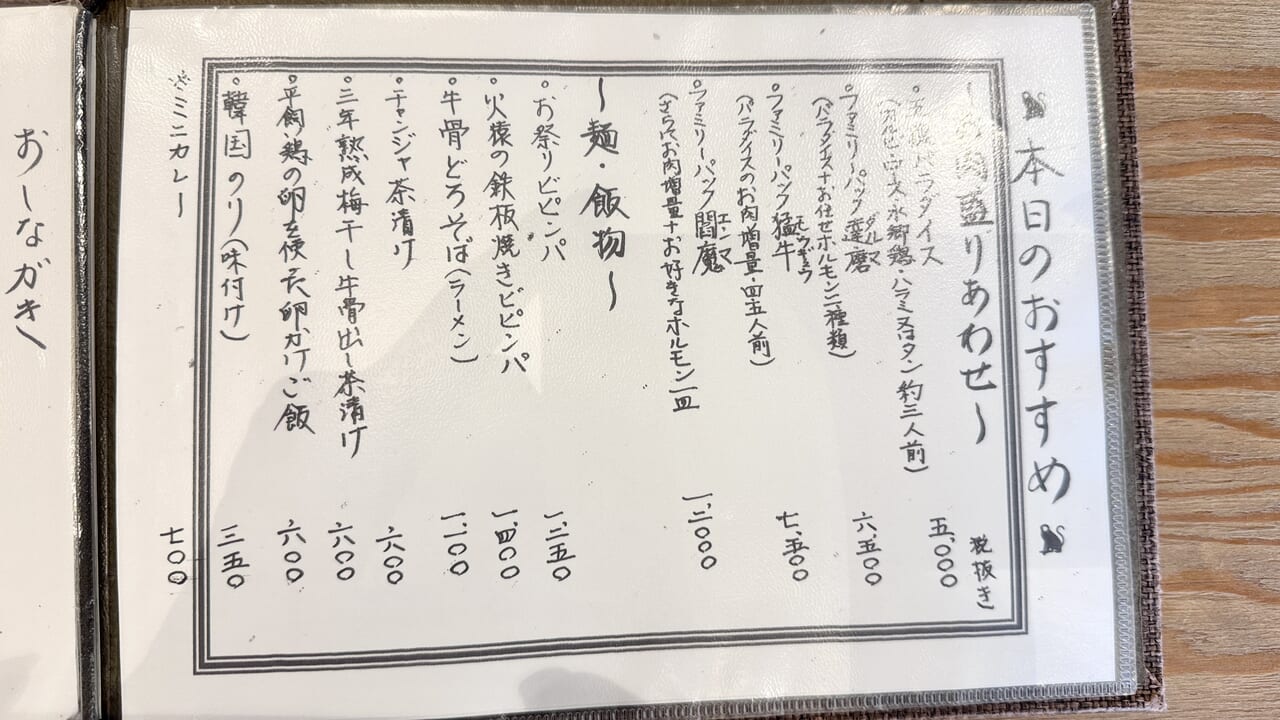 本日のおすすめ
〜お肉盛りあわせ〜 税抜き
パラダイス 五、〇〇〇
ロース・水郷鶏・ハラミ又はタン 約三人前)
。ファミリーパック達磨 六、五〇〇
ダルマ
(パラダイス+お任せホルモン二種類)
。ファミリーパック猛牛 七、五〇〇
モウギュウ
(パラダイスのお肉増量・四五人前)
。ファミリーパック閻魔 一、二〇〇〇
エンマ
(さらにお肉増量+お好きなホルモン一皿)
〜麺・飯物〜
。お祭りビビンパ 一、三五〇
。火猿の鉄板焼きビビンパ 一、四〇〇
。牛骨どろそば(ラーメン) 一、一〇〇
。チャンジャ茶漬け 六〇〇
。三年熟成梅干し牛骨出し茶漬け 六〇〇
。平飼鶏の卵を使った卵かけご飯 六〇〇
。韓国のり(味付け) 三五〇
※ミニカレー 七〇〇
おしながき